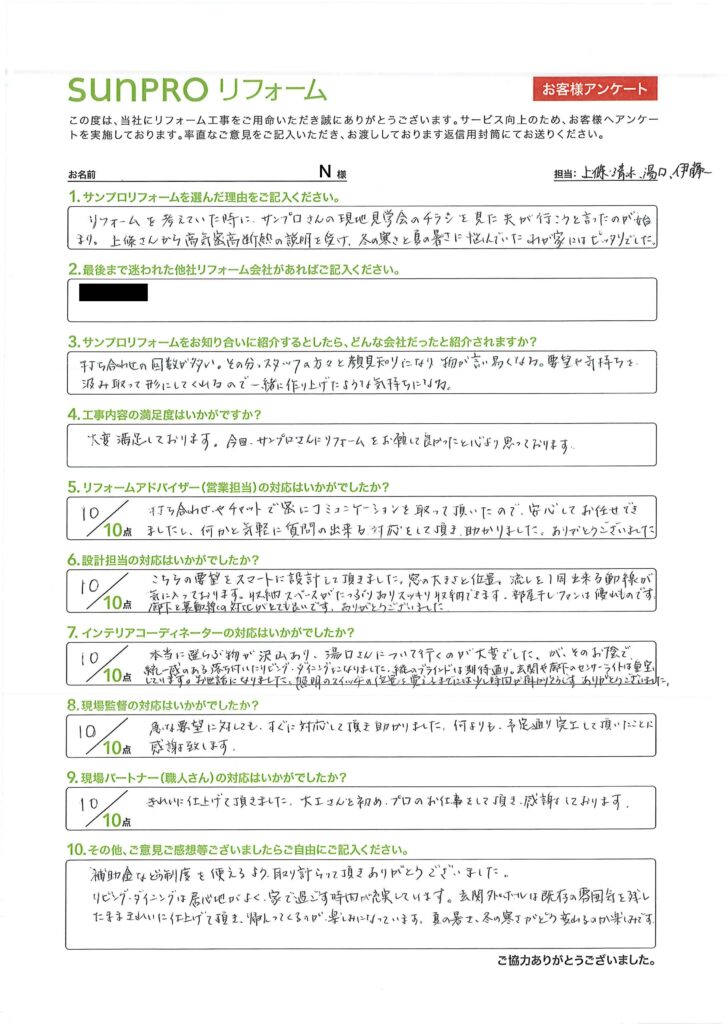 SUNPRO リフォーム
お客様アンケート
この度は、当社にリフォーム工事をご用命いただき誠にありがとうございます。サービス向上のため、お客様へアンケー
トを実施しております。率直なご意見をご記入いただき、お渡ししております返信用封筒にてお送りください。
お名前 N 様 担当: 上條、清水、湯口、伊藤
1.サンプロリフォームを選んだ理由をご記入ください。
リフォームを考えていた時に、サンプロさんの現地見学会のチラシを見た夫が行こうと言ったのが始
まり。上條さんから高気密高断熱の説明を受け、冬の寒さと夏の暑さに悩んでいたわが家にはピッタリでした。
2.最後まで迷われた他社リフォーム会社があればご記入ください。
3.サンプロリフォームをお知り合いに紹介するとしたら、どんな会社だったと紹介されますか?
打ち合わせの回数が多い。その分、スタッフの方々と顔見知りになり物が言い易くなる。要望や気持ちを
汲み取って形にしてくれるので一緒に作り上げたような気持ちになる。
4.工事内容の満足度はいかがですか?
大変満足しております。今回、サンプロさんにリフォームをお願いして良かったと心より思っております。
5.リフォームアドバイザー(営業担当)の対応はいかがでしたか?
10/10点
打ち合わせやチャットで密にコミュニケーションを取って頂いたので、安心してお任せでき
ましたし、何かと気軽に質問の出来る対応をして頂き、助かりました。ありがとうございました
6.設計担当の対応はいかがでしたか?
10/10点
こちらの要望をスマートに設計して頂きました。窓の大きさと位置、流しを1周出来る動線が
気に入っております。収納スペースがたっぷりありスッキリ収納できます。部屋干しファンは優れものです。
廊下と裏動線の対比がとても良いです。ありがとうございました
7.インテリアコーディネーターの対応はいかがでしたか?
10/10点
本当に選らぶ物が沢山あり、湯口さんについて行くのが大変でした。が、そのお陰で
統一感のある落ち付いたリビング・ダイニングになりました。縦のブラインドは期待通り。玄関や廊下のセンサーライトは重宝
しています。お世話になりました。照明のスイッチの位置を覚えるまでには少し時間が掛かりそうです ありがとうございました。
8.現場監督の対応はいかがでしたか?
10/10点
急な要望に対しても、すぐに対応して頂き助かりました。何よりも、予定通り完工して頂いたことに
感謝致します。
9.現場パートナー(職人さん)の対応はいかがでしたか?
10/10点
きれいに仕上げて頂きました。大工さんを初め、プロのお仕事をして頂き、感謝しております。
10.その他、ご意見ご感想等ございましたらご自由にご記入ください。
補助金などの制度を使えるよう取り計らって頂きありがとうございました。
リビング・ダイニングは居心地がよく、家で過ごす時間が充実しています。玄関外・ホールは既存の雰囲気を残し
たままきれいに仕上げて頂き、帰ってくるのが楽しみになっています。夏の暑さ、冬の寒さがどう変わるのか楽しみです
ご協力ありがとうございました。